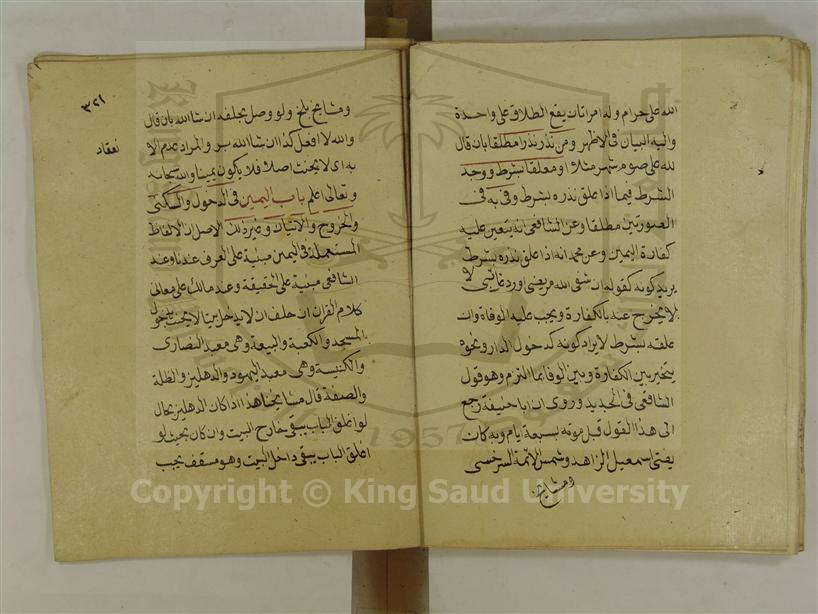 الله على حرام وله امراتان يقع الطلاق على واحدة
واليه البيان في الاظهر ومن نذر نذرا مطلقا بان قال
لله على صوم شهر مثلا او معلقا بشرط ووجد
الشرط فيما اذا علق نذره بشرط وفى به في
الصورتين مطلقا وعن الشافعي انه يتعين عليه
كفارة اليمين وعن محمد انه اذا علق نذره بشرط
يريد كونه كقوله ان شفى الله مريضى او رد غائبى لا
لا يخرج عنه بالكفارة ويجب عليه الوفاة وان
علقه بشرط لا يراد كونه كدخول الدار ونحوه
يتخير بين الكفارة وبين الوفا بما التزم وهو قول
الشافعي في الجديد وروى ان ابا حنيفة رجع
الى هذا القول قبل موته بسبعة ايام وبه كان
يفتى اسمعيل الزاهد وشمس الائمة السرخسى
ومشايخ
٣٢١
ومشايخ بلخ ولو وصل بحلفه ان شا الله بان قال
والله لا افعل كذا ان شا الله بر والمراد عدم الا
نعقاد
به اى لا يحنث اصلا فلا يكون يمينا والله سبحانه
وتعالى اعلم باب اليمين في الدخول والسكنى
والخروج والاتيان وغير ذلك الاصل ان الالفاظ
المستعملة في اليمين مبنية على العرف عندنا وعند
الشافعي مبنية على الحقيقة وعند مالك على معانى
كلام القران ان حلف ان لا يدخل بيتا لا يحنث بدخول
المسجد والكعبة والبيعة وهى معبد النصارى
والكنيسة وهى معبد اليهود والدهليز والظلة
والصفة قال مشايخنا هذا اذا كان الدهليز بحال
لو اغلق الباب يبقى خارج البيت وان كان بحيث لو
اغلق الباب يبقى داخل البيت وهو مسقف يجب
Copyright © King Saud University
1957